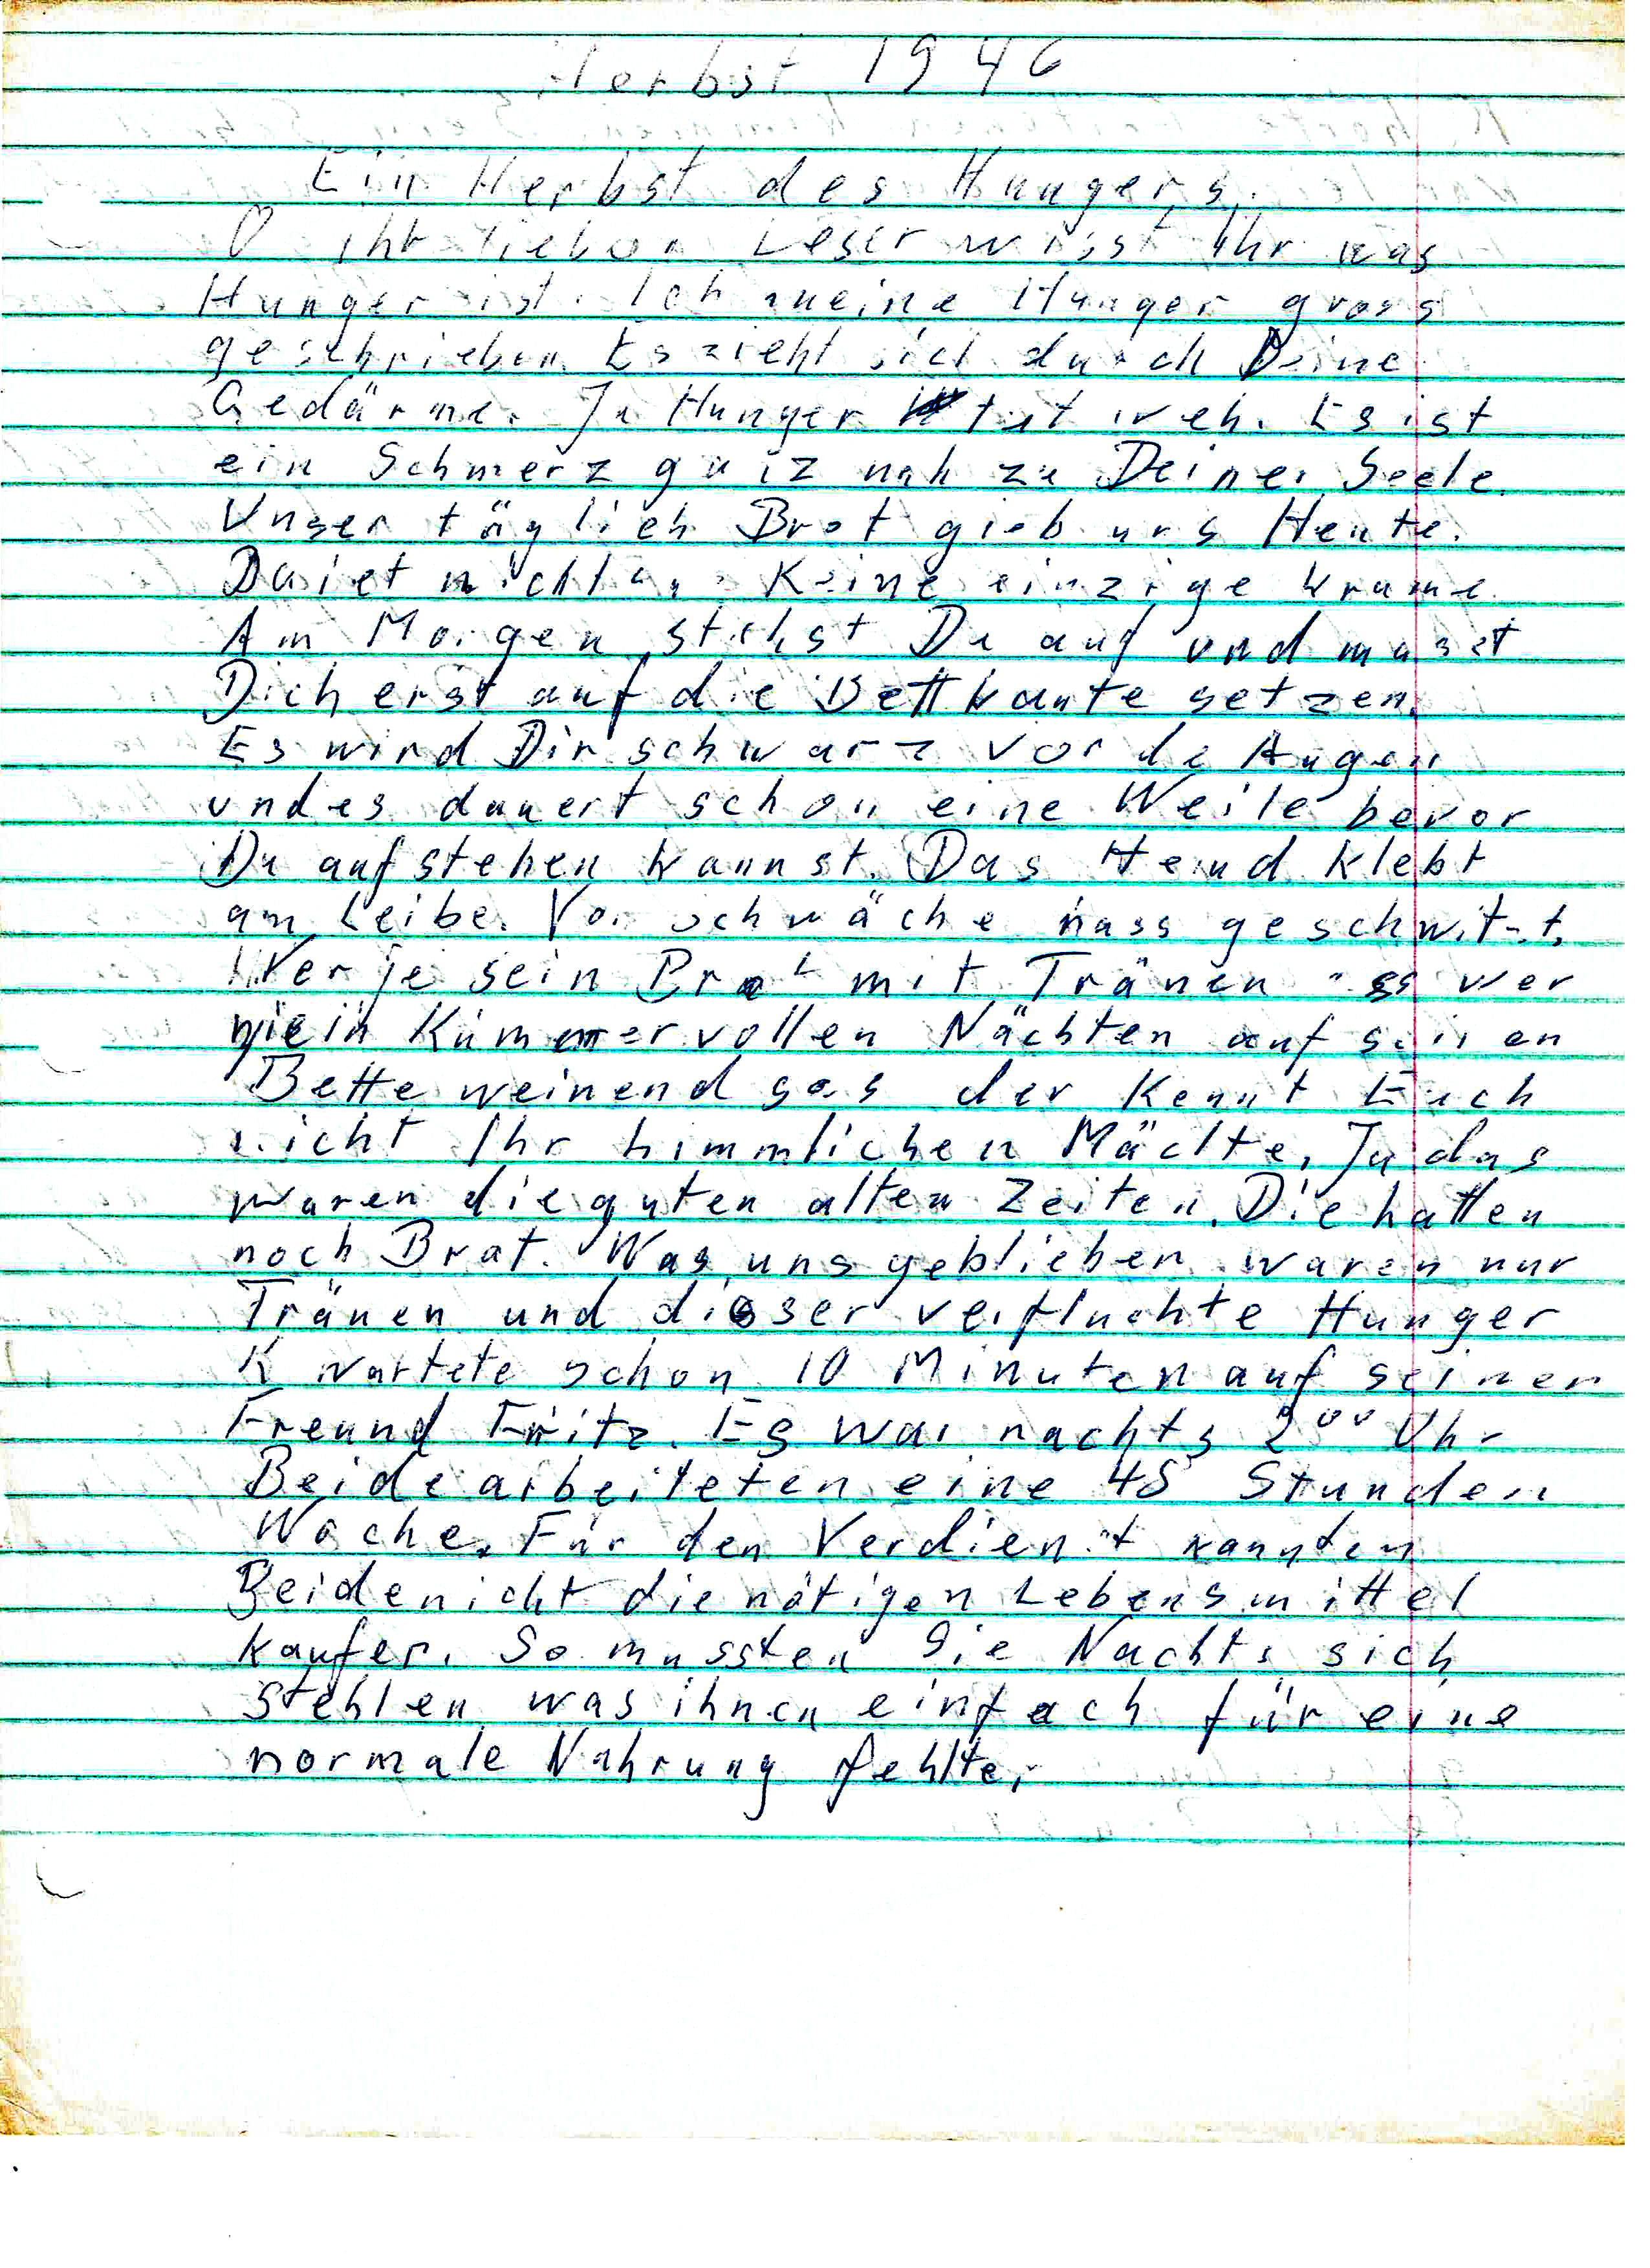 Herbst 1946
Ein Herbst des Hungers.
O ihr lieben Leser wisst Ihr was
Hunger ist. Ich meine Hunger gross
geschrieben. Es zieht sich durch Deine
Gedärme. Ja Hunger tut weh. Es ist
ein Schmerz ganz nah zu Deiner Seele.
Unser täglich Brot gieb uns Heute.
Da ist nichts Keine einzige Krume.
Am Morgen stehst Du auf und musst
Dich erst auf die Bettkante setzen.
Es wird Dir schwarz vor de Augen
und es dauert schon eine Weile bevor
Du aufstehen kannst. Das Hemd klebt
am Leibe. Vor Schwäche nass geschwitzt.
Wer je sein Brot mit Tränen ass wer
nie in Kummervollen Nächten auf seinen
Bette weinend sas der kennt Euch
nicht Ihr himmlichen Mächte. Ja das
waren die guten alten Zeiten. Die hatten
noch Brot. Was uns geblieben waren nur
Tränen und dieser verfluchte Hunger
K wartete schon 10 Minuten auf seinen
Freund Fritz. Es war nachts 2⁰⁰ Uhr
Beide arbeiteten eine 48 Stunden
Woche. Für den Verdienst konnten
Beide nicht die nötigen Lebensmittel
kaufen. So mussten Sie Nachts sich
stehlen was ihnen einfach für eine
normale Nahrung fehlte.